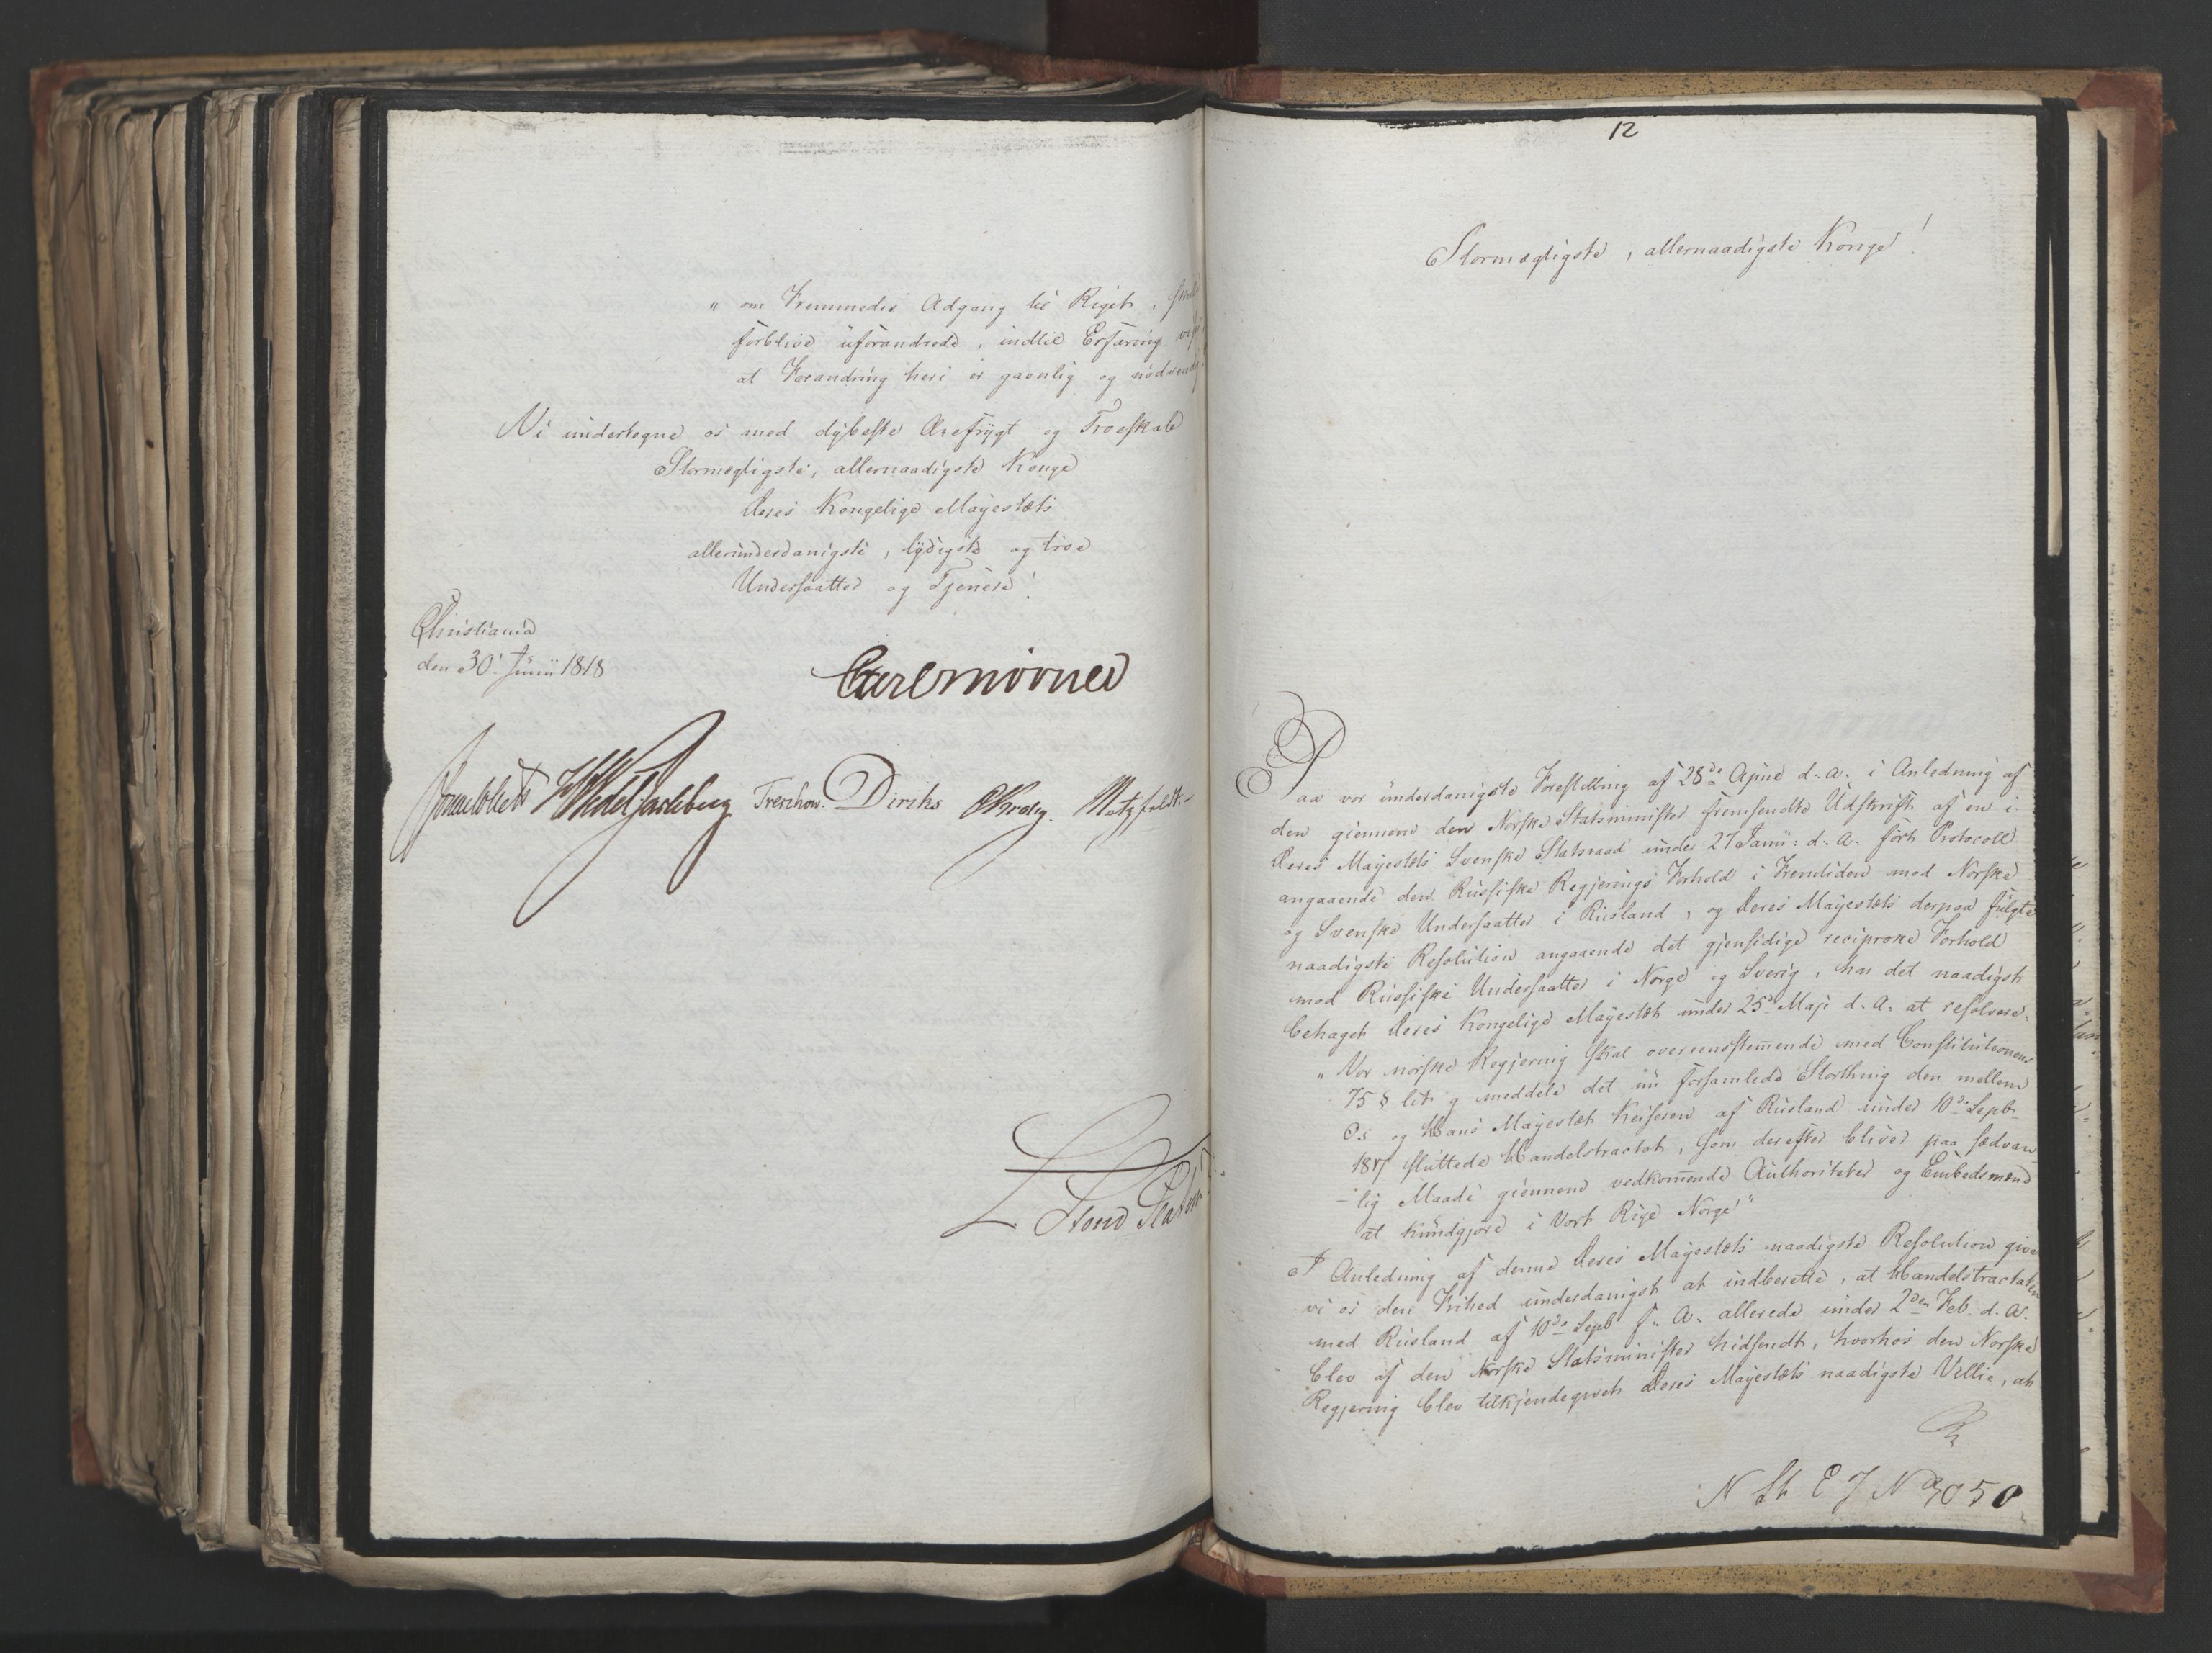 " om Fremmedes Adgang til Riget, skulle
forblive uforandrede, indtil Erfaring
at Forandring heri er gavnlig og nødvendig
Vi undertegne os med dybeste Ærefrygt og Troeskab
Stormægtigste, allernaadigste Konge
Deres Kongelige Mayestæts
allerunderdanigste, lydigste og troe
Undersaatter og Tjenere!
Christiania
den 30' Junii 1818
Carl Mörner
Sommerhielm HWedel Jarlsberg Treschow. Diriks CKrohg. Motzfeldt.
12
Stormægtigste, allernaadigste Konge!
Paa vor underdanigste Forestilling af 28de April d. A. i Anledning af
den giennem den Norske Statsminister fremsendte Udskrift af en i
Deres Mayestæts Svenske Statsraad under 27 Janu: d. A. ført Protocoll
angaaende den Russiske Regjerings Forhold i Fremtiden mod Norske
og Svenske Undersaatter i Rusland, og Deres Mayestæts derpaa fulgte
naadigste Resolution angaaende det gjensidige reciproke Forhold
mod Russiske Undersaatter i Norge og Sverig, har det naadigst
behaget Deres Kongelige Mayestæt under 25' Maji d. A. at resolvere:
" Vor norske Regjering skal overeensstem̄ende med Constitutionens
75 § lit g meddele det nu forsamlede Storthing den mellem
Os og Hans Mayestæt Keiseren af Rusland under 10de Sept
1817 sluttede Handelstractat, som derefter bliver paa sædvan
-lig Maade giennem vedkom̄ende Authoriteter og Embedsmænd
at kundgjøre i Vort Rige Norge"
I Anledning af denne Deres Mayestæts naadigste Resolution give
vi os den Frihed underdanigst at indberette, at Handelstractaten
med Rusland af 10de Sept f. A. allerede under 2den Feb. d. A.
blev af den Norske Statsminister hidsendt, hvorhos den Norske
Regjering blev tilkjendegivet Deres Mayestæts naadigste Villie, at
N St E J N 3050